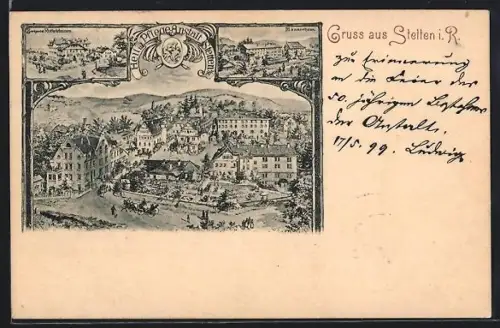 Heil- & Pflege-Anstalt Stetten
Männerhaus
Gruss aus Stetten i. R.
zur Erinnerung
an die Feier des
50. jährigen Bestehens
der Anstalt.
17/5. 99. Ludwig